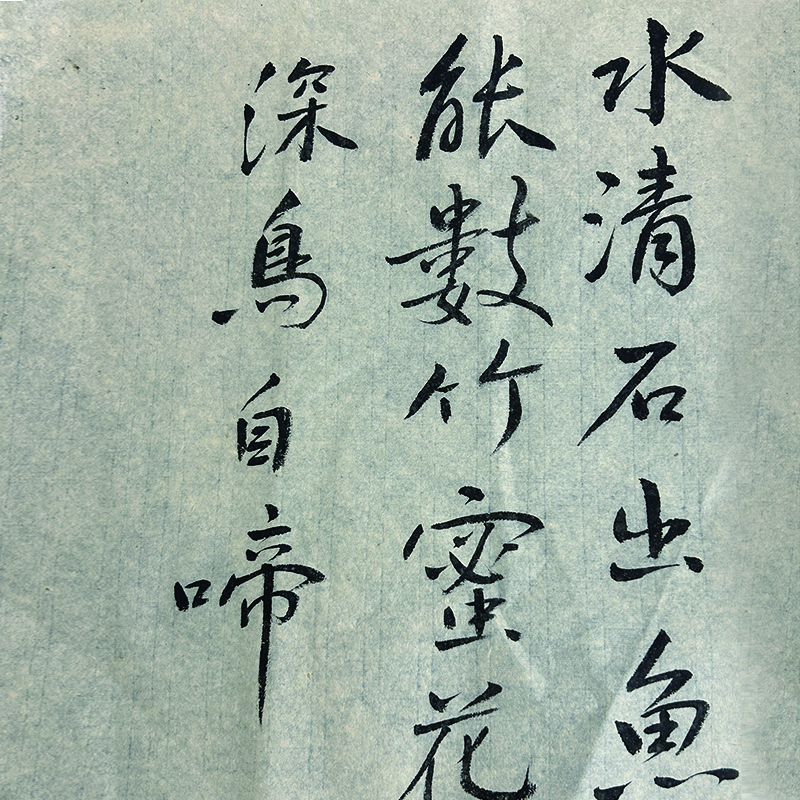 水清石出魚
能數竹蜜花
深鳥自啼